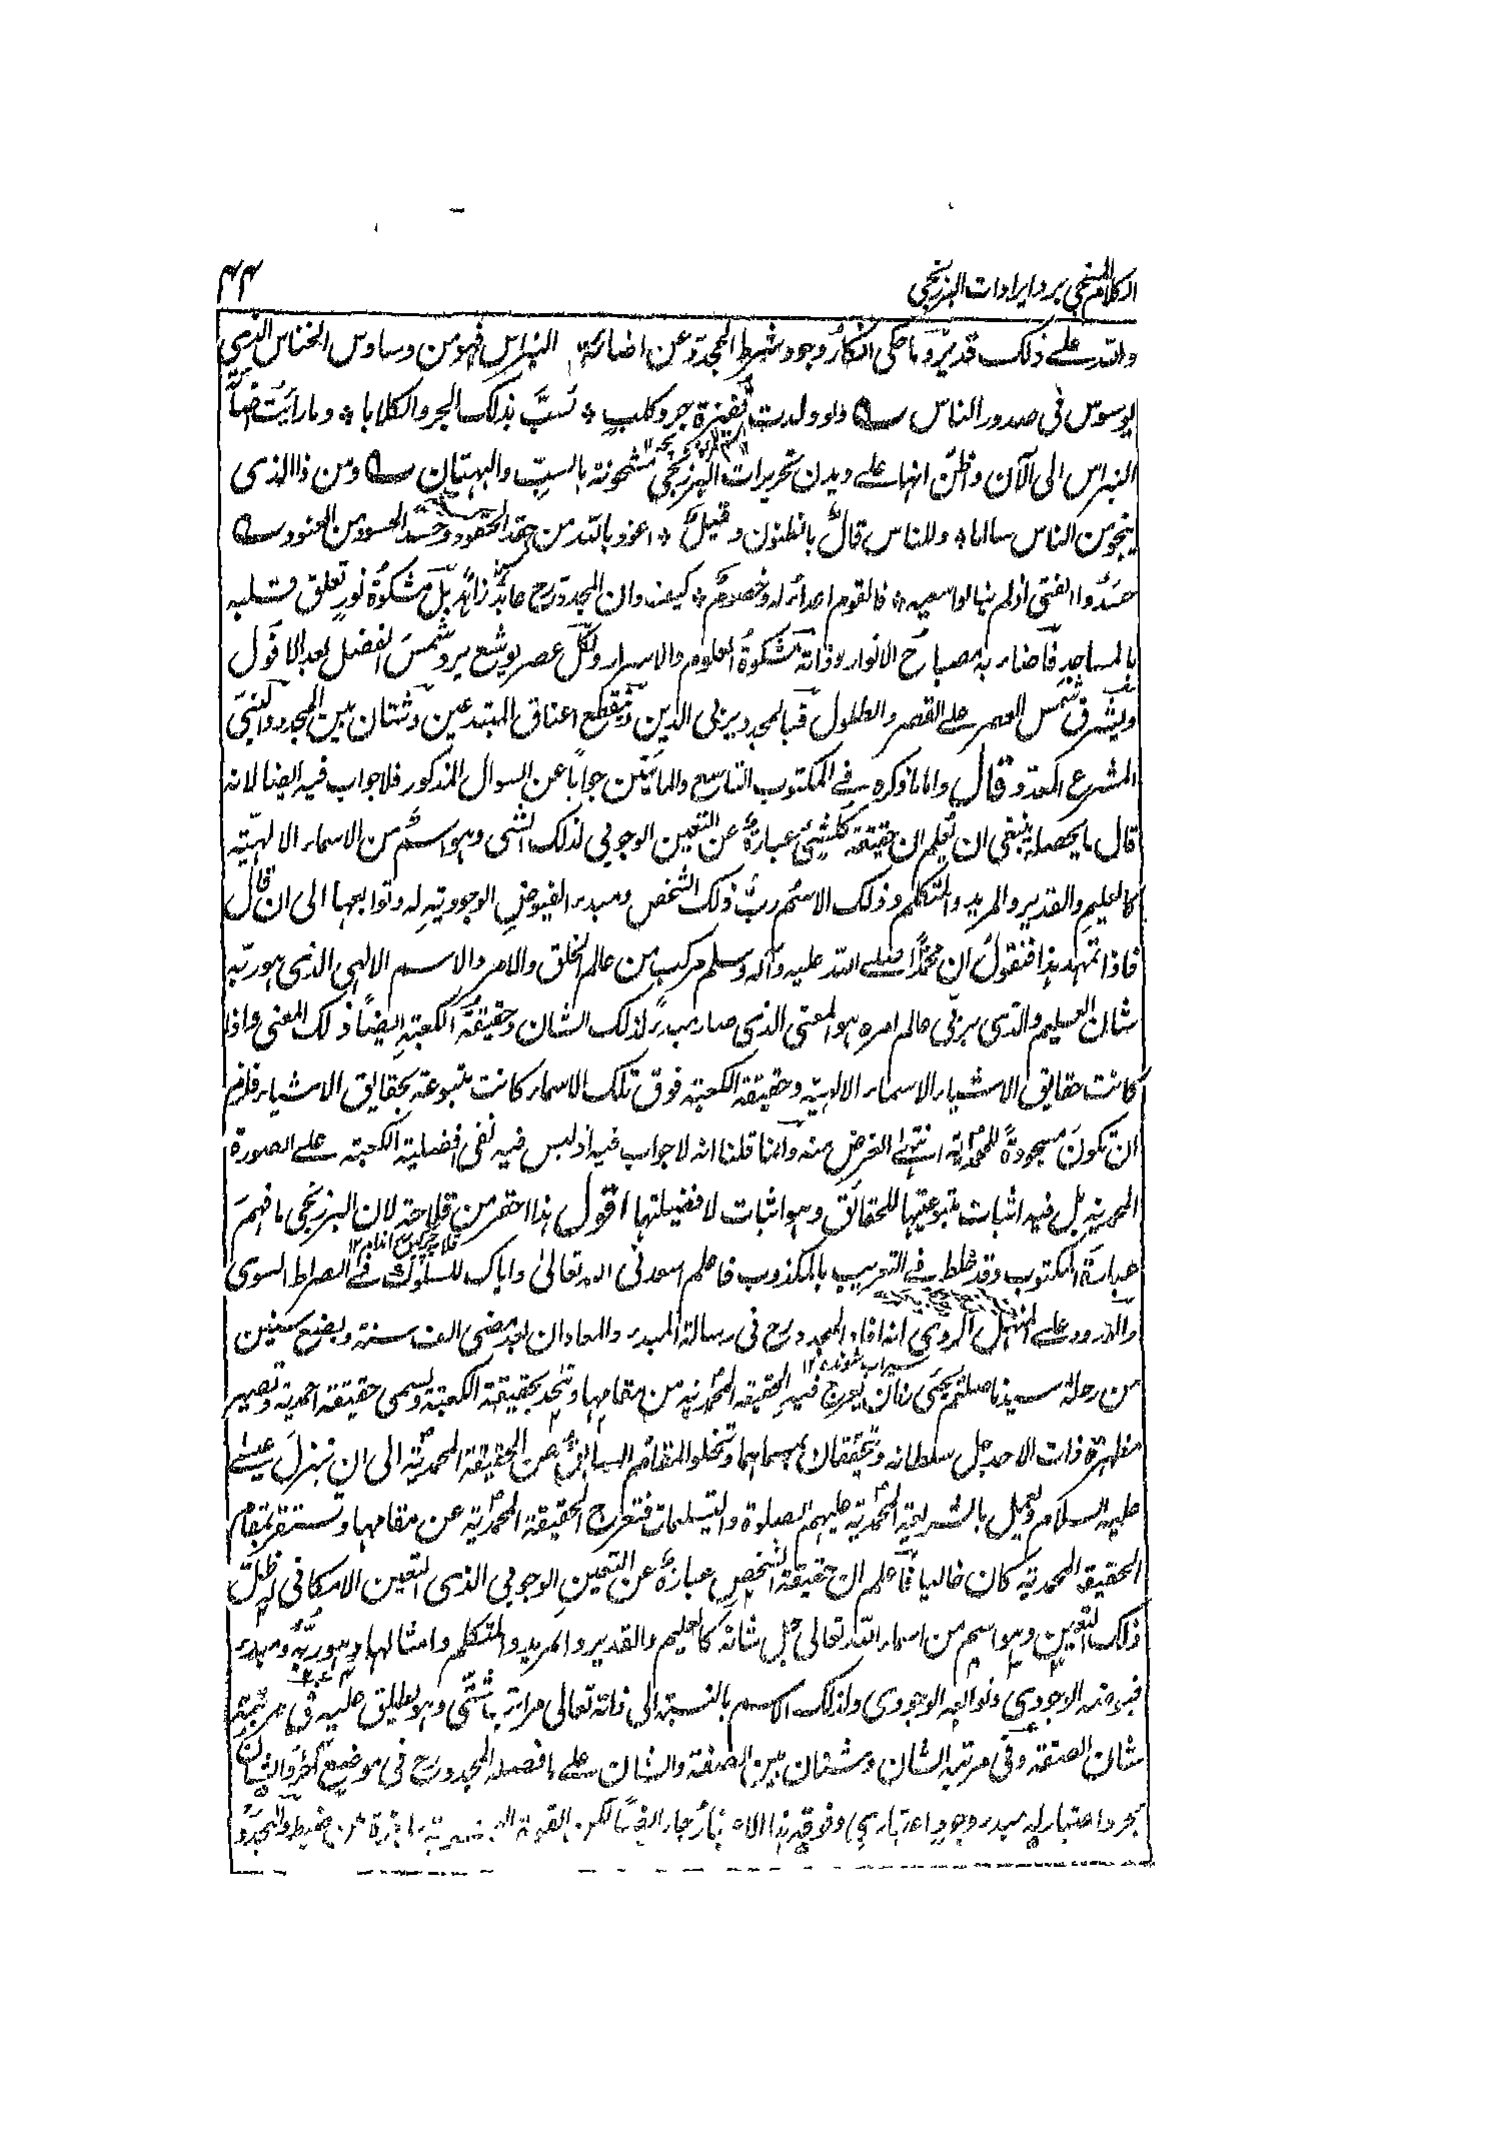 الكلام المنجي برد ايرادات البرزنجي
۴۴
والله على ذلك قدير وما حكى انكار وجود شرط المجدد عن اضائة النبراس فهو من وساوس الخناس الذي
يوسوس في صدور الناس ولو ولدت قفيزة جرو كلب * لسب بذلك الجرو الكلابا * وما رايت
النبراس الى الآن وظن انها على ديدن تحريرات البرزنجي مشحونة بالسب والبهتان ومن ذا الذي
ينجو من الناس سالما * وللناس قال بالظنون وقيل * اعوذ بالله من حقد الحقود وحسد الحسود من العنود
حسدوا الفتى اذ لم ينالوا سعيه * فالقوم اعداء له وخصوم * كيف وان المجدد رح عابد زاهد بل مشكوة نور تعلق قلبه
بالمساجد فاضاء به مصباح الانوار وذاته مشكوة العلوم والاسرار ولكل عصر يوشع يرد شمس الفضل بعد الافول
ويشرق شمس العصر على القصر والطلول فبالمجدد يربى الدين وينقطع اعناق المبتدعين وشتان بين المجدد والنبي
المشرع المعد وقال واما ما ذكره في المكتوب التاسع والمأتين جوابا عن السوال المذكور فلا جواب فيه ايضا لانه
قال ما يحصله ينبغي ان يعلم ان حقيقة كل شيئ عبارة عن التعين الوجوبي لذلك الشى وهو اسم من الاسماء الالهية
كالعليم والقدير والمريد والمتكلم وذلك الاسم رب ذلك الشخص ومبدء الفيوض الوجودية له وتوابعها الى ان قال
فاذا تمهد هذا فنقول ان محمدا صلى الله عليه وآله وسلم مركب من عالم الخلق والامر والاسم الالهي الذي هو ربه
شان العليم والذي يربي عالم امره هو المعنى الذي صار مبدء لذلك الشان وحقيقة الكعبة ايضا ذلك المعنى واذا
كانت حقايق الاشياء الاسماء الالهية وحقيقة الكعبة فوق تلك الاسماء كانت متبوعة بحقايق الاشياء فلزم
ان تكون مسجودة للمحمدية انتهى الغرض منه وانما قلنا انه لا جواب فيه اذ ليس فيه نفى افضلية الكعبة على الصورة
المحمدية بل فيه اثبات متبوعيتها للحقائق وهو اثبات لافضيلتها اقول هذا احقر من قلامة لان البرزنجي ما فهم
عبارة المكتوب وقد خلط في التعريب بالمكذوب فاعلم اسعدني الله تعالى واياك للسلوك في الصراط السوى
والورود على المنهل الروي انه افاد المجدد رح في رسالة المبدء والمعاد ان بعد مضى الف سنة وبضع سنين
سيراب شونده ۱۲
من رحلة سيدنا صلعم يجئ زمان يعرج فيه الحقيقة المحمدية من مقامها وتتحد بحقيقة الكعبة وتسمى حقيقة احمدية وتصير
مظهرة ذات الاحد جل سلطانه ويتحققان بمسماهما وتخلو المقام السابق عن الحقيقة المحمدية الى ان ينزل عيسى
عليه السلام ويعمل بالشريعة المحمدية عليهم الصلوة والتسليمات فتعرج الحقيقة المحمدية عن مقامها وتستقر بمقام
الحقيقة المحمدية كان خاليا فاعلم ان حقيقة الشخص عبارة عن التعين الوجوبي الذي التعين الامكاني له ظل
ذلك التعين وهو اسم من اسماء الله تعالى جل شانه كالعليم والقدير والمريد والمتكلم وامثالها وهو ربه ومبدء
فيوضه الوجودي وتوابعه الوجودي ولذلك الاسم بالنسبة الى ذاته تعالى مراتب شتى وهو يطلق عليه في مرتبة
شان الصفة وفي مرتبة الشان وشتان بين الصفة والشان على ما فصله المجدد رح في موضع آخر والشان
مجرد اعتبار له مبدء وجود اعتباري وفوقه هذا الاعتبار جار ايضا لكن القوة البشرية عاجزة عن ضبطه والمجدد